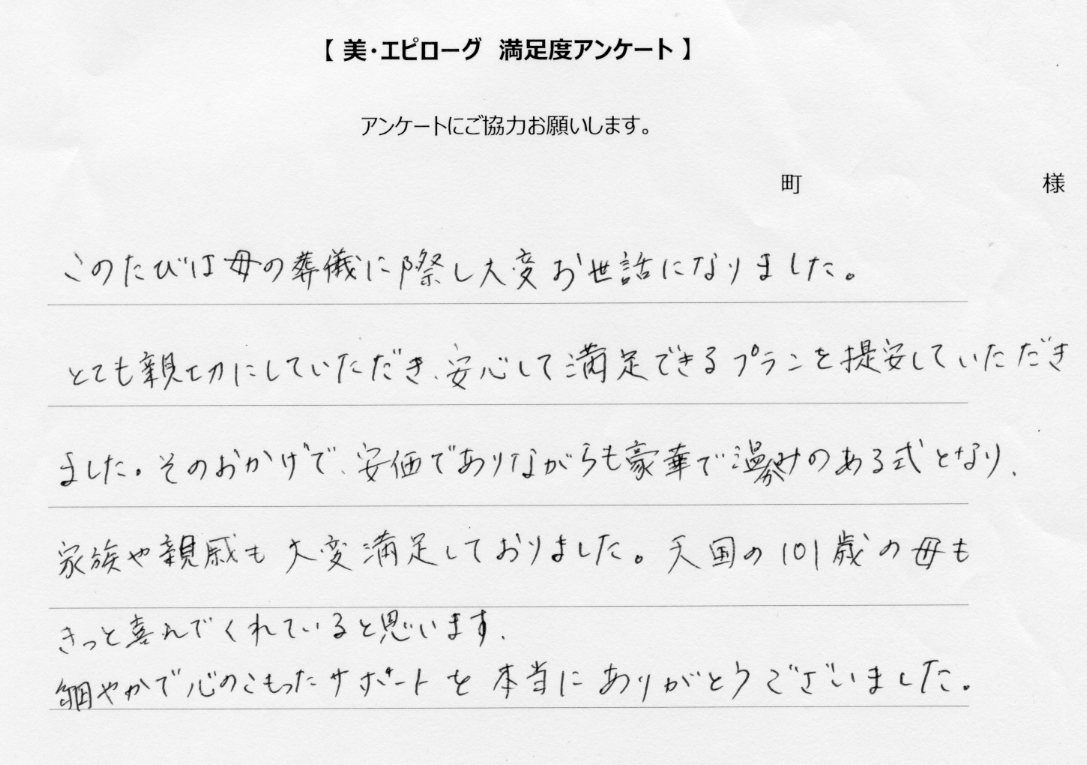 【 美・エピローグ 満足度アンケート 】
アンケートにご協力お願いします。
町 様
このたびは母の葬儀に際し大変お世話になりました。
とても親切にしていただき、安心して満足できるプランを提案していただき
ました。そのおかげで、安価でありながらも豪華で温かみのある式となり、
家族や親戚も大変満足しておりました。天国の101歳の母も
きっと喜んでくれていると思います。
細やかで心のこもったサポートを本当にありがとうございました。